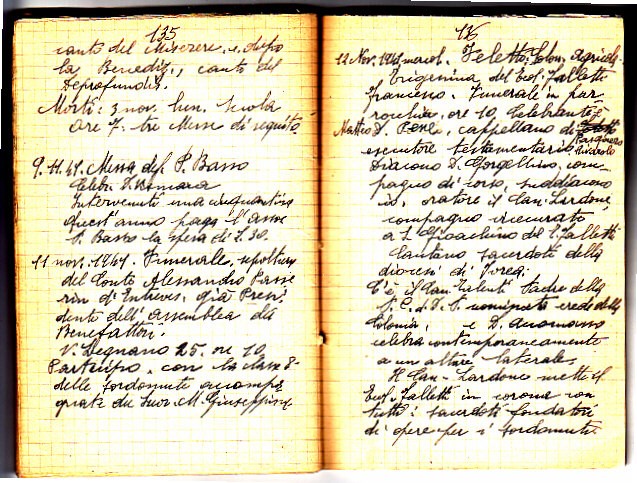 135
canto del Miserere, e, dopo
la Benediz., canto del
Deprofundis.
Morti: 3 nov. lun. Scuola
Ore 7: tre Messe di seguito.
9.11.41. Messa del P. Basso
Celebra
Intervenuti una cinquantina
Quest'anno paga l'asse
P. Basso la spesa di L. 30.
11 nov. 1941. Funerale, sepoltura
del Conte Alessandro Passe
rin d'Entreves, già Presi
dente dell'Assemblea dei
Benefattori.
V. Legnano 25. ore 10
Partecipo, con la classe 8ª
delle sordomute accompa
gnate da Suor M. Giuseppina
136
12 Nov. 1941 mercol. Feletto: Colon. Agricola
Erigenda, del Teol. Falletti
Francesco. Funerale in par
rocchia, ore 10. Celebrante
Matteo D. cappellano di
esecutore testamentario,
Diacono D. Giorgellino, com-
pagno di corso, suddiacono
id., oratore il Can. Lardone,
compagno vicecurato
a S. Gioachino del T. Falletti
Cantano sacerdoti della
diocesi di
C'è il Can. Valenti Padre della
P.C.d.D.P. nominata erede della
Colonia, e D.
celebra contemporaneamente
a un altare laterale.
Il Can. Lardone mette il
Teol. Falletti in corona con
tutti i sacerdoti fondatori
di opere per i sordomuti